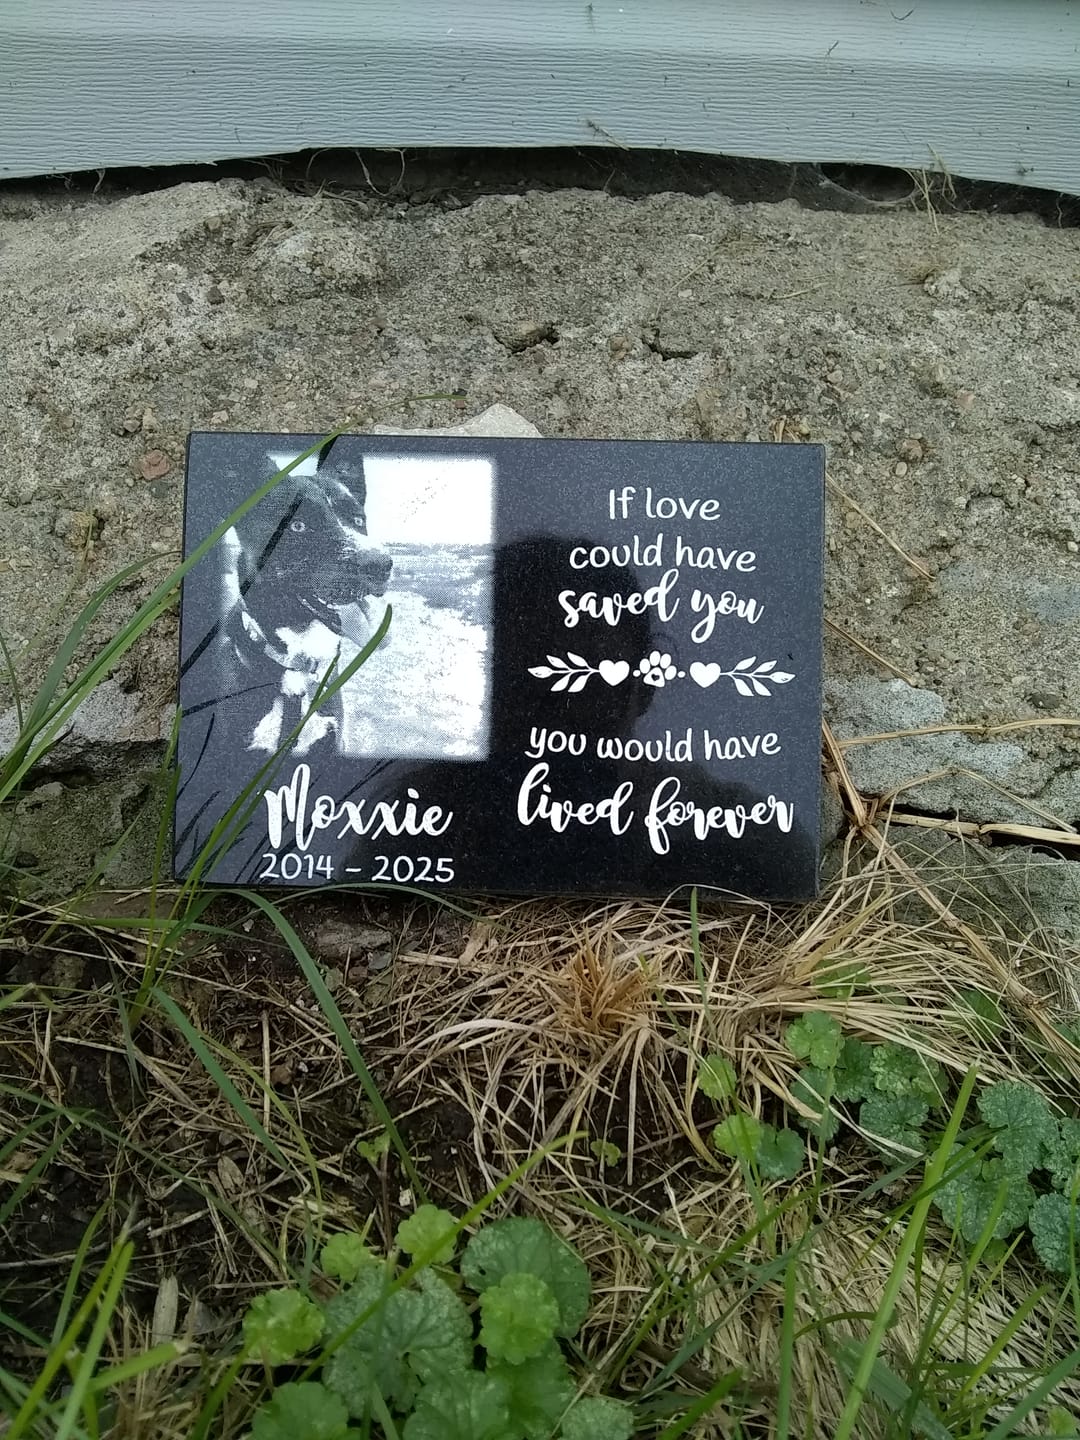 If love
could have
saved you
you would have
lived forever
Moxxie
2014 - 2025